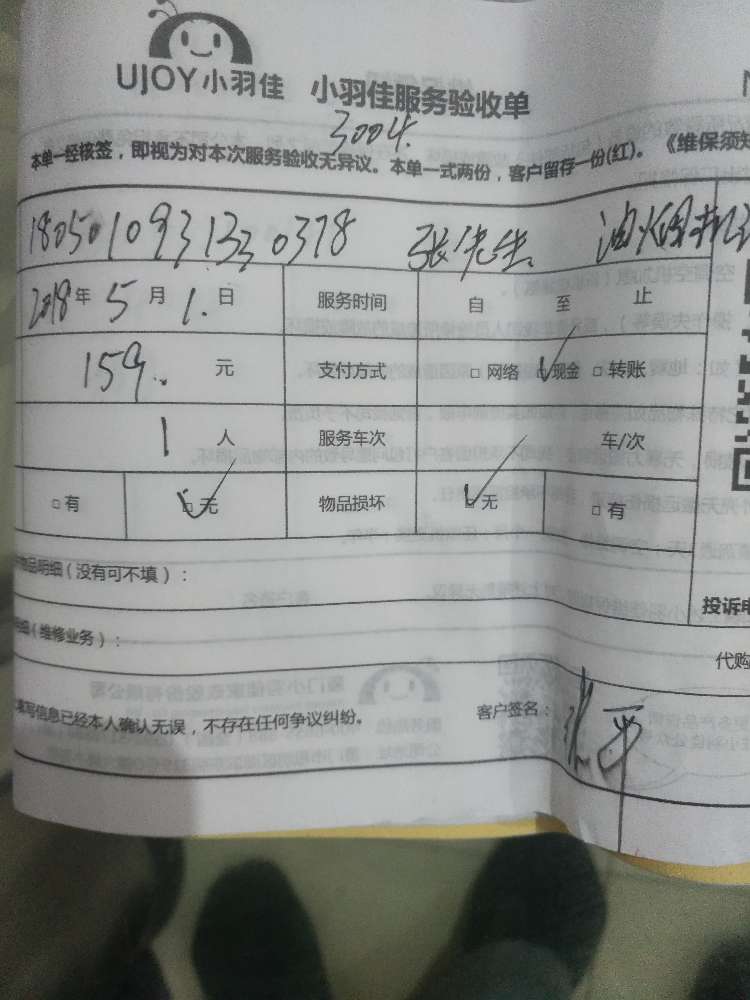 UJOY小羽佳 小羽佳服务验收单
3004.
本单一经核签，即视为对本次服务验收无异议。本单一式两份，客户留存一份(红)。《维保须知
180501093133 0378 张先生 油烟机
2018年5月1.日 服务时间 自 至 止
159. 元 支付方式 □网络 □现金 □转账
1 人 服务车次 车/次
□有 □无 物品损坏 □无 □有
物品明细（没有可不填）：
细（维修业务）：
投诉电
代购
填写信息已经本人确认无误，不存在任何争议纠纷。 客户签名：张平